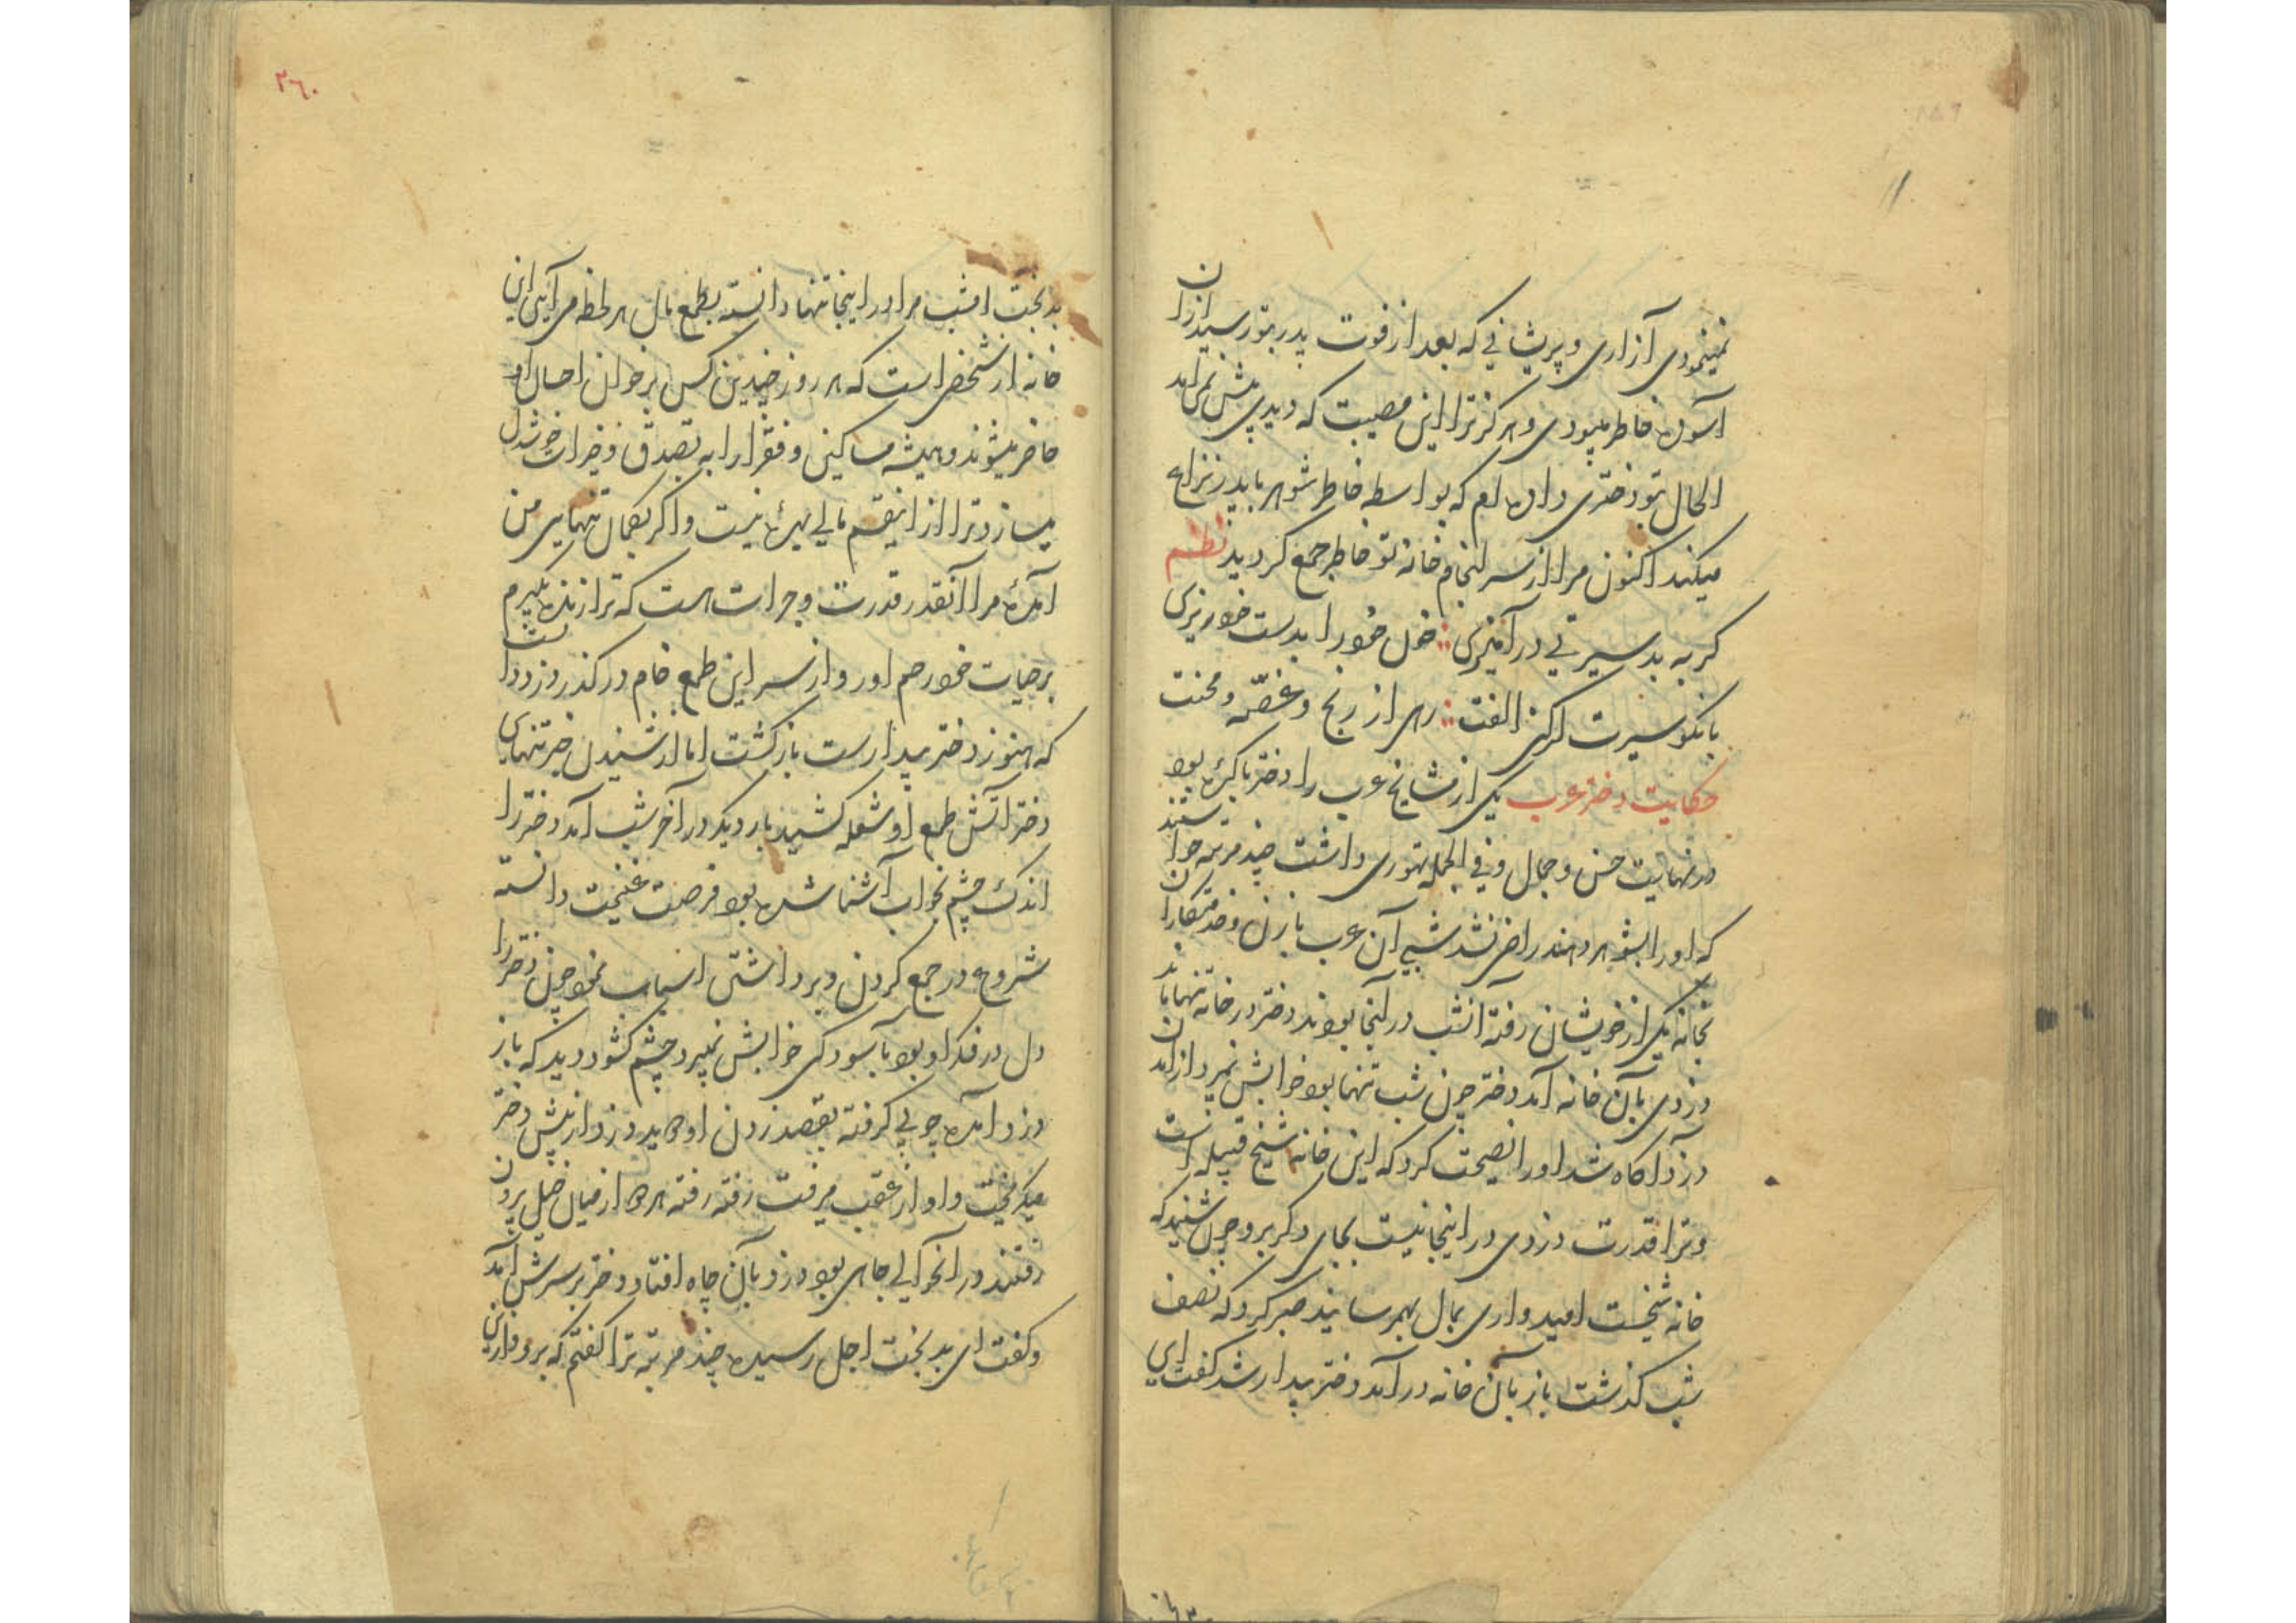 نمینمودی آزاری و پریشانی که بعد از فوت پدر بتو رسید ازان
آسوده خاطر میبودی و هرکز ترا این مصیبت که دیدی پیش نمی امد
الحال تو دختری داده ام که بواسطه خاطر شوهر با پدر نزاع
میکند اکنون مرا از سرانجام خانه تو خاطر جمع کردید نظم
کر به بد سیرتی در آمیزی خون خود را بدست خود ریزی
با نکو سیرت ار کنی الفت رهی از رنج و غصه و محنت
حکایت دختر عرب یکی از مشایخ عرب را دختر باکره بود
در نهایت حسن و جمال و فی الجمله تهوری داشت چند مرتبه خواستند
که او را بشوهر دهند راضی نشد شبی آن عرب با زن و خدمتکاران
بخانه یکی از خویشان رفته آنشب در آنجا بودند دختر در خانه تنها ماند
دزدی بآن خانه آمد دختر چون شب تنها بود خوابش نمیبرد از آمدن
دزد آکاه شد او را نصیحت کرد که این خانه شیخ قبیله است
و ترا قدرت دزدی در اینجا نیست بجای دکر برو چون شنید که
خانه شیخست امیدواری بمال بهمرسانید صبر کرد که نصف
شب کذشت باز بآن خانه در آمد دختر بیدار شد کفت ای
۲۶۰
بدبخت امشب مرا در اینجا تنها دانسته بطمع مال هر لحظه می آیی این
خانه از شخصی است که هر روز چندین کس بر خوان احسان او
حاضر میشوند و همیشه مساکین و فقرا را به تصدق و خیرات خوشدل
میسازد ترا از اینقسم مالی بهره نیست و اکر بکمان تنهایی من
آمده مرا آنقدر قدرت و جرات هست که ترا زنده بکیرم
بر حیات خود رحم اور و از سر این طمع خام در کذر دزد دانست
که هنوز دختر بیدارست باز کشت اما از شنیدن خبر تنهایی
دختر آتش طمع او شعله کشید بار دیکر در آخر شب آمد دختر را
اندک چشم بخواب آشنا شده بود فرصت غنیمت دانسته
شروع در جمع کردن و برداشتن اسباب نمود چون دختر را
دل در فکر او بود بآسودکی خوابش نمیبرد چشم کشود دید که باز
دزد آمده چوبی کرفته بقصد زدن او دوید دزد از پیش دختر
میکریخت و او از عقب میرفت رفته رفته هر دو از میان خیل بیرون
رفتند در انحوالی چاهی بود دزد بآن چاه افتاد دختر بر سرش آمد
و کفت ای بدبخت اجل رسیده چند مرتبه ترا کفتم که برو و از این